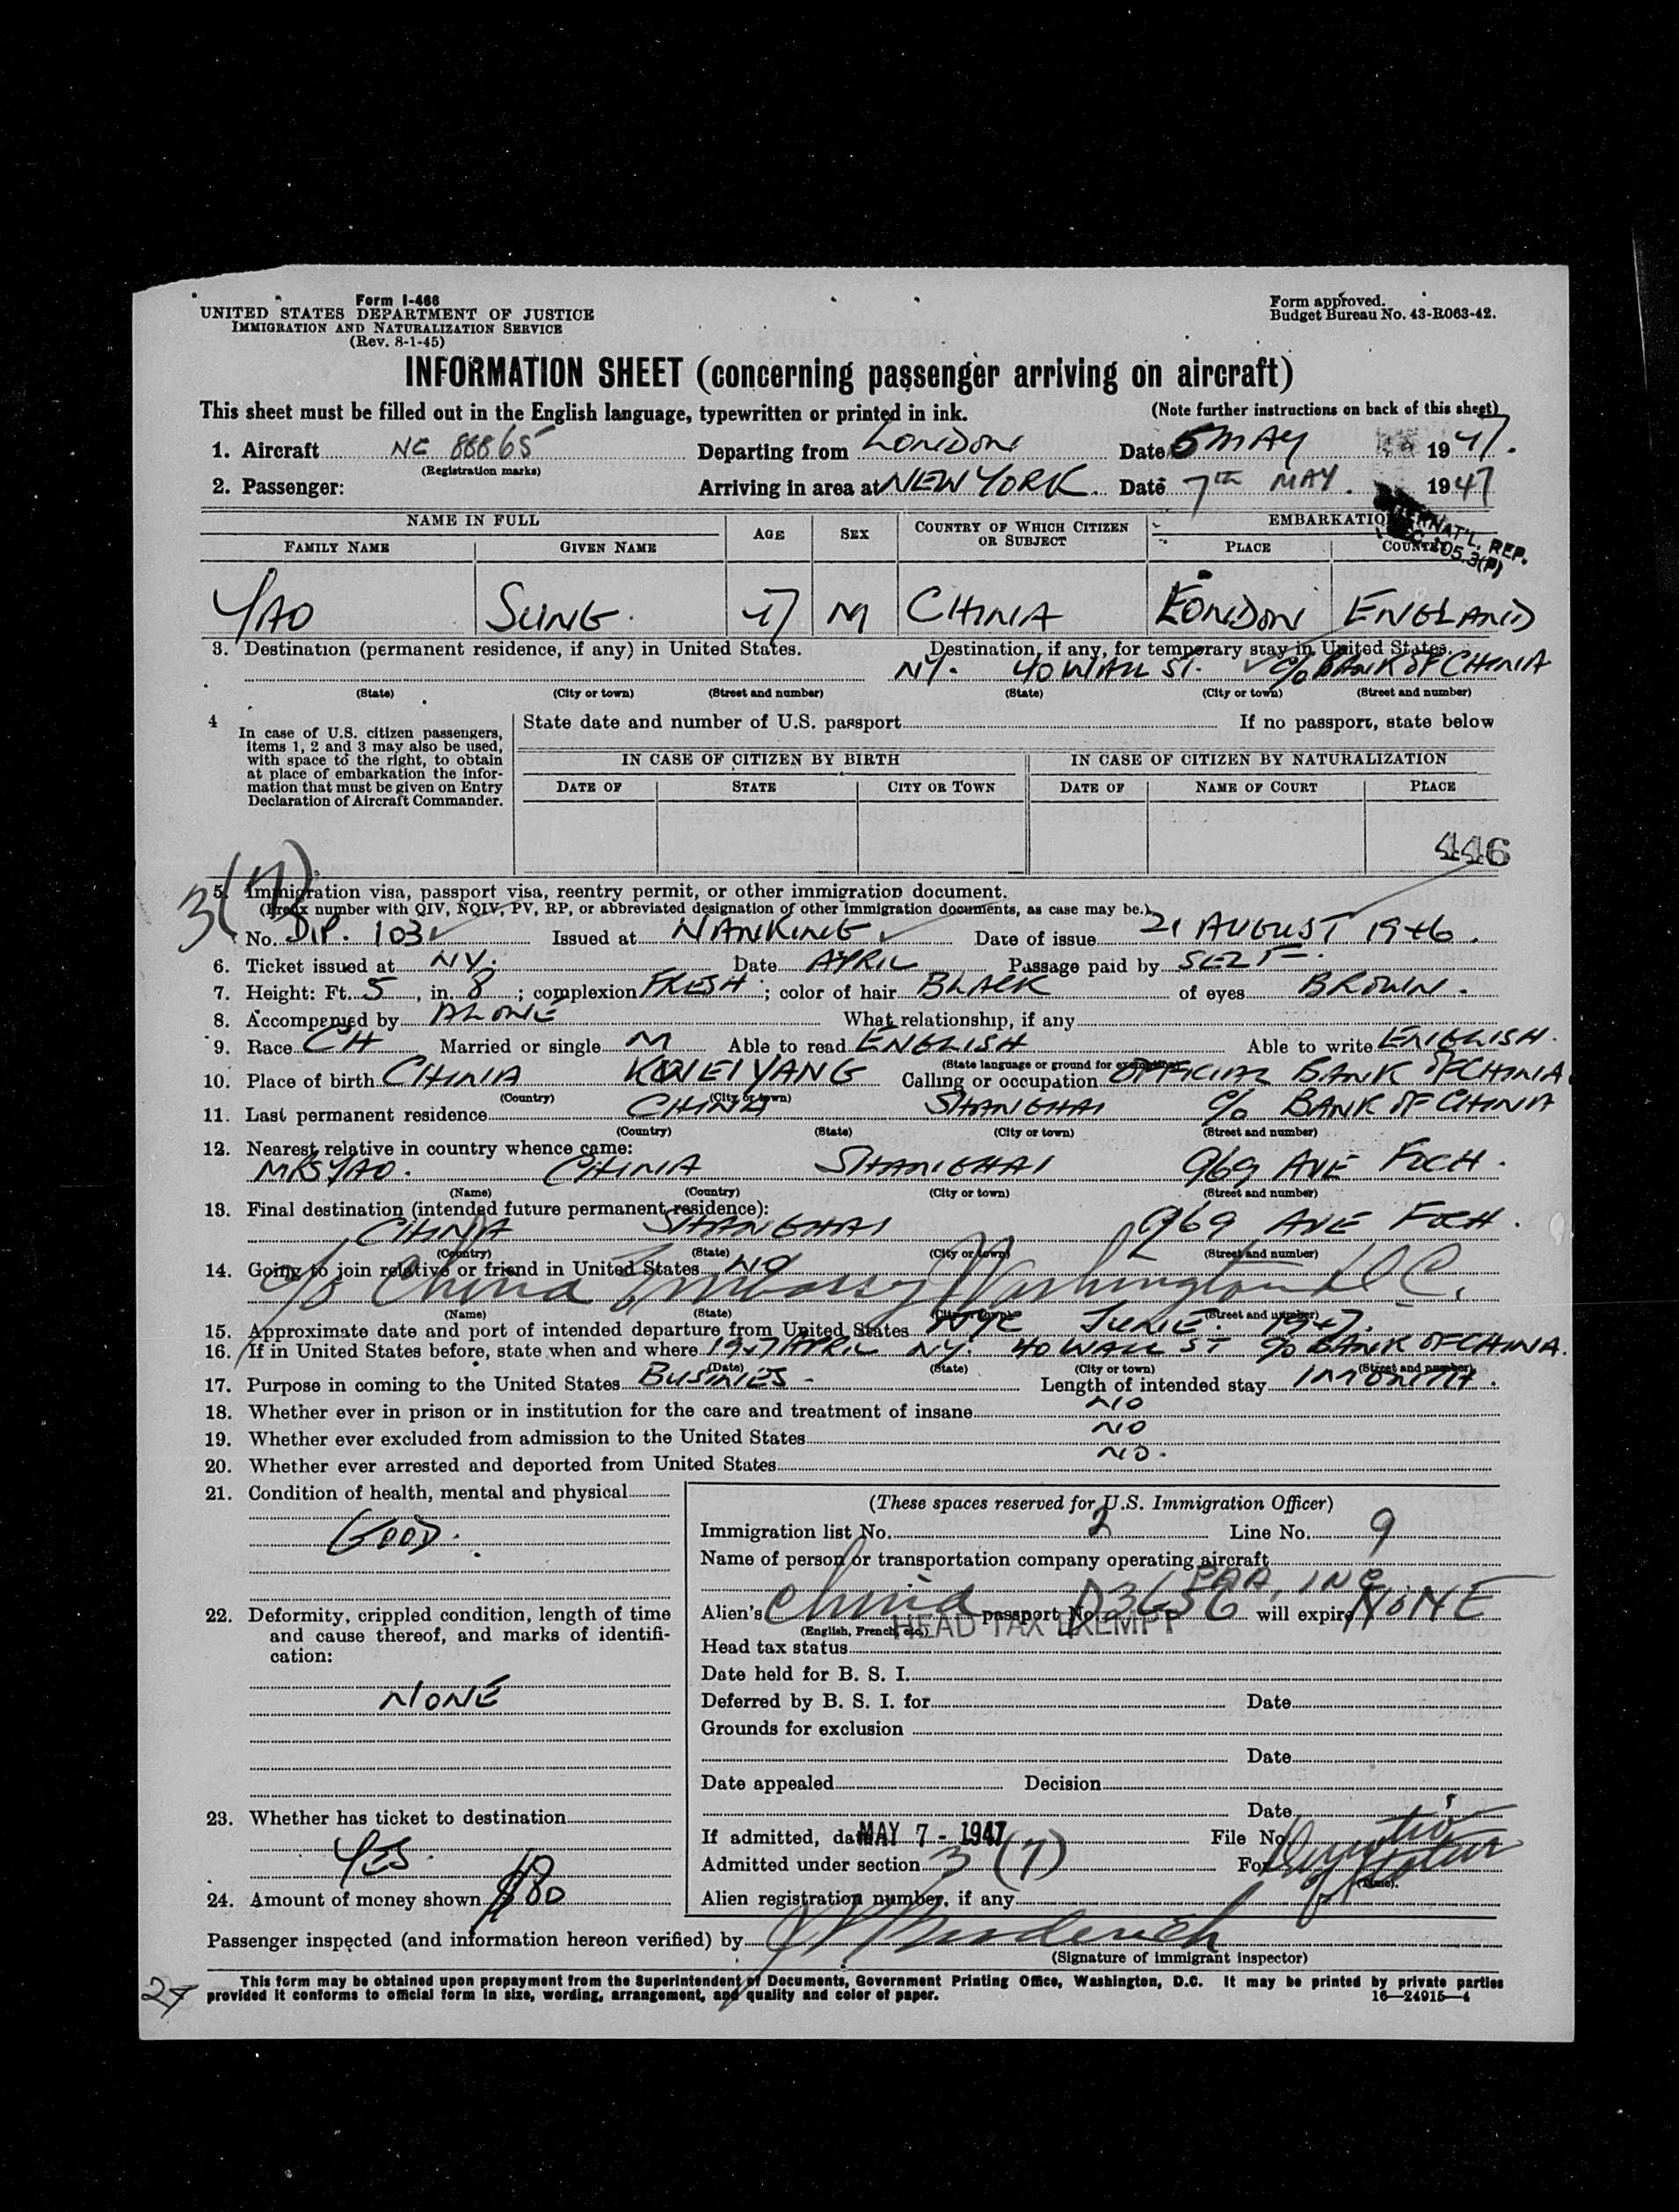 Form I-466
UNITED STATES DEPARTMENT OF JUSTICE
IMMIGRATION AND NATURALIZATION SERVICE
(Rev. 8-1-45)
Form approved.
Budget Bureau No. 43-R063-42.
INFORMATION SHEET (concerning passenger arriving on aircraft)
This sheet must be filled out in the English language, typewritten or printed in ink. (Note further instructions on back of this sheet)
1. Aircraft NC 88865 Departing from LONDON Date 5 MAY 1947.
(Registration marks)
2. Passenger: Arriving in area at NEW YORK. Date 7th MAY. 1947
INTERNAT'L. REP.
SEC. 105.3(P)
NAME IN FULL AGE SEX COUNTRY OF WHICH CITIZEN OR SUBJECT EMBARKATION
FAMILY NAME GIVEN NAME PLACE COUNTRY
YAO SUNG. 47 M CHINA LONDON ENGLAND
3. Destination (permanent residence, if any) in United States. Destination, if any, for temporary stay in United States.
NY. 40 WALL ST. c/o BANK OF CHINA
(State) (City or town) (Street and number) (State) (City or town) (Street and number)
4 In case of U.S. citizen passengers, items 1, 2 and 3 may also be used, with space to the right, to obtain at place of embarkation the information that must be given on Entry Declaration of Aircraft Commander.
State date and number of U.S. passport If no passport, state below
IN CASE OF CITIZEN BY BIRTH IN CASE OF CITIZEN BY NATURALIZATION
DATE OF STATE CITY OR TOWN DATE OF NAME OF COURT PLACE
446
3(7)
5. Immigration visa, passport visa, reentry permit, or other immigration document.
(Prefix number with QIV, NQIV, PV, RP, or abbreviated designation of other immigration documents, as case may be.)
No. DIP. 103 Issued at NANKING Date of issue 21 AUGUST 1946.
6. Ticket issued at NY. Date APRIL Passage paid by SELF.
7. Height: Ft. 5, in. 8; complexion FRESH; color of hair BLACK of eyes BROWN.
8. Accompanied by ALONE What relationship, if any
9. Race CH Married or single M Able to read ENGLISH Able to write ENGLISH.
(State language or ground for exemption)
10. Place of birth CHINA KWEIYANG Calling or occupation OFFICIAL BANK OF CHINA.
(Country) (City or town)
11. Last permanent residence CHINA SHANGHAI c/o BANK OF CHINA
(Country) (State) (City or town) (Street and number)
12. Nearest relative in country whence came:
MRS YAO. CHINA SHANGHAI 969 AVE FOCH.
(Name) (Country) (City or town) (Street and number)
13. Final destination (intended future permanent residence):
CHINA SHANGHAI 969 AVE FOCH.
(Country) (State) (City or town) (Street and number)
14. Going to join relative or friend in United States NO
c/o China Embassy Washington D.C.
(Name) (State) (City or town) (Street and number)
15. Approximate date and port of intended departure from United States JUNE. 1947.
16. If in United States before, state when and where 1947 APRIL NY. 40 WALL ST c/o BANK OF CHINA.
(Date) (State) (City or town) (Street and number)
17. Purpose in coming to the United States BUSINES - Length of intended stay 1 MONTH.
18. Whether ever in prison or in institution for the care and treatment of insane NO
19. Whether ever excluded from admission to the United States NO
20. Whether ever arrested and deported from United States NO.
21. Condition of health, mental and physical
GOOD.
22. Deformity, crippled condition, length of time and cause thereof, and marks of identification:
NONE
23. Whether has ticket to destination
YES.
24. Amount of money shown $80
(These spaces reserved for U.S. Immigration Officer)
Immigration list No. 2 Line No. 9
Name of person or transportation company operating aircraft
PAA, INC
Alien's China passport No. D3656 will expire NONE
(English, French, etc.)
HEAD TAX EXEMPT
Head tax status
Date held for B. S. I.
Deferred by B. S. I. for Date
Grounds for exclusion
Date
Date appealed Decision
Date
If admitted, date MAY 7 - 1947 File No.
Admitted under section 3 (7) For
(Time).
Alien registration number, if any
Passenger inspected (and information hereon verified) by
(Signature of immigrant inspector)
27
This form may be obtained upon prepayment from the Superintendent of Documents, Government Printing Office, Washington, D.C. It may be printed by private parties
provided it conforms to official form in size, wording, arrangement, and quality and color of paper. 16—24915-4